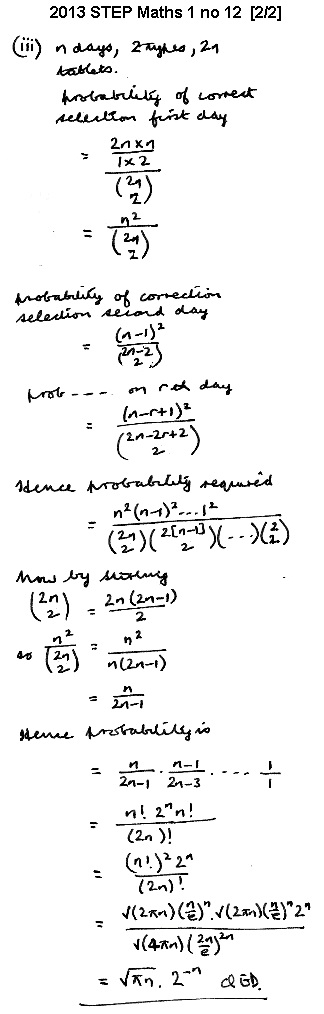 2013 STEP Maths 1 no 12 [2/2]
(iii) n days, 2 types, 2n
tablets.
probability of correct
selection first day
= (2n × n)/(1 × 2) / (2n 2)
= n² / (2n 2)
probability of correction
selection second day
= (n-1)² / (2n-2 2)
prob ---- on rth day
= (n-r+1)² / (2n-2r+2 2)
Hence probability required
= n²(n-1)²...1² / (2n 2)(2[n-1] 2)(...)(2 2)
Now by
(2n 2) = 2n(2n-1)/2
so n²/(2n 2) = n²/n(2n-1)
= n/2n-1
Hence probability is
= n/2n-1 . n-1/2n-3 . ---- 1/1
= n! 2ⁿ n! / (2n)!
= (n!)² 2ⁿ / (2n)!
= √(2πn)(n/e)ⁿ.√(2πn)(n/e)ⁿ 2ⁿ / √(4πn)(2n/e)²ⁿ
= √πn . 2⁻ⁿ QED.